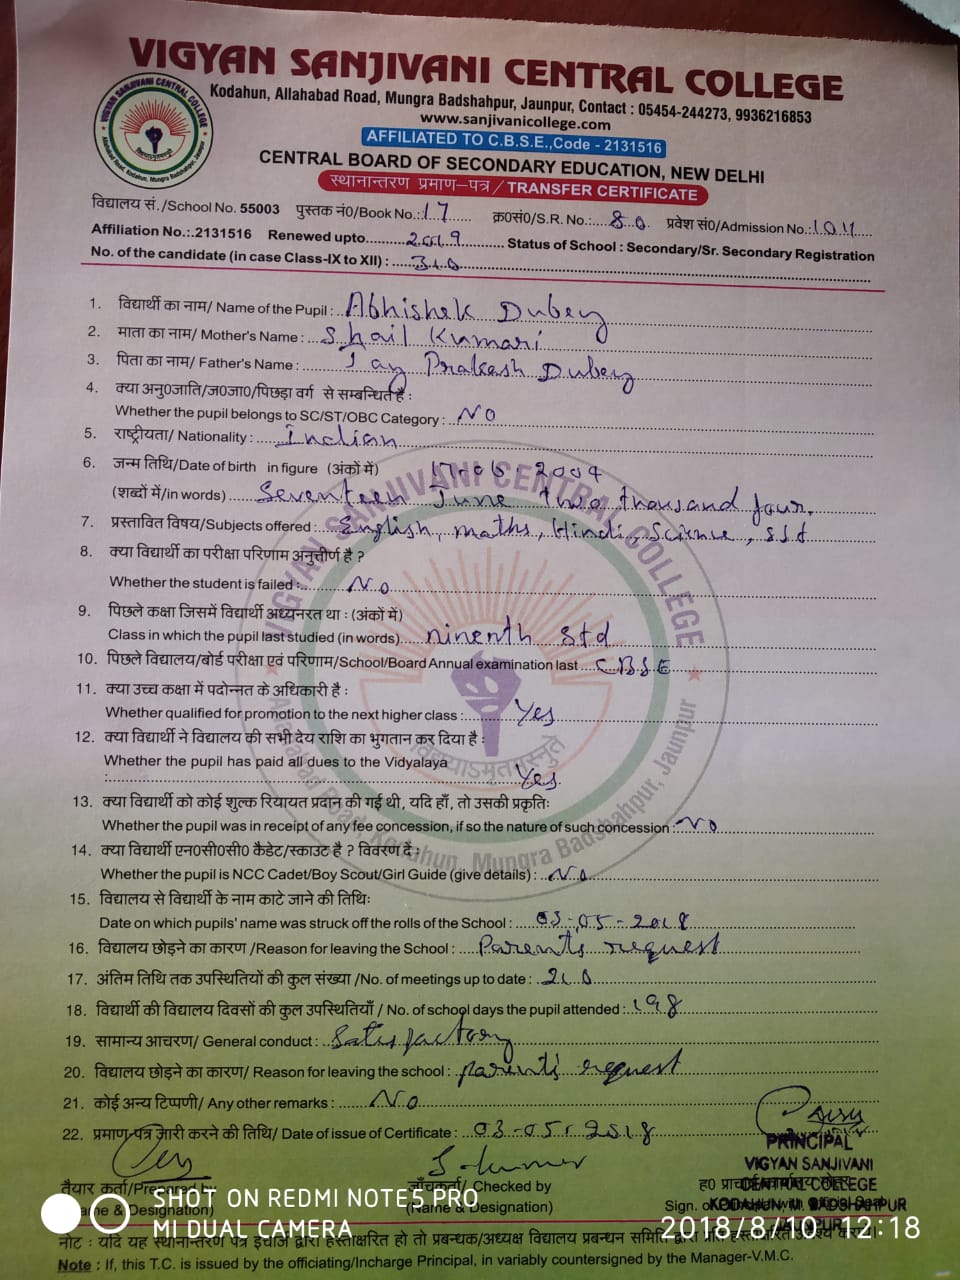 VIGYAN SANJIVANI CENTRAL COLLEGE
Kodahun, Allahabad Road, Mungra Badshahpur, Jaunpur, Contact : 05454-244273, 9936216853
www.sanjivanicollege.com
AFFILIATED TO C.B.S.E.,Code - 2131516
CENTRAL BOARD OF SECONDARY EDUCATION, NEW DELHI
स्थानान्तरण प्रमाण-पत्र / TRANSFER CERTIFICATE
विद्यालय सं./School No. 55003 पुस्तक नं0/Book No.: 17 क्र0सं0/S.R. No.: 80 प्रवेश सं0/Admission No.: 1011
Affiliation No.:.2131516 Renewed upto 2019 Status of School : Secondary/Sr. Secondary Registration
No. of the candidate (in case Class-IX to XII) : 310
1. विद्यार्थी का नाम/ Name of the Pupil : Abhishek Dubey
2. माता का नाम/ Mother's Name : Shail Kumari
3. पिता का नाम/ Father's Name : Jay Prakash Dubey
4. क्या अनु0जाति/ज0जा0/पिछड़ा वर्ग से सम्बन्धित है :
Whether the pupil belongs to SC/ST/OBC Category : NO
5. राष्ट्रीयता/ Nationality : Indian
6. जन्म तिथि/Date of birth in figure (अंकों में) 17-06-2004
(शब्दों में/in words) Seventeen June two thousand four.
7. प्रस्तावित विषय/Subjects offered : English, maths, Hindi, Science, S.St
8. क्या विद्यार्थी का परीक्षा परिणाम अनुत्तीर्ण है ?
Whether the student is failed : No
9. पिछले कक्षा जिसमें विद्यार्थी अध्यनरत था : (अंकों में)
Class in which the pupil last studied (in words) ninenth std
10. पिछले विद्यालय/बोर्ड परीक्षा एवं परिणाम/School/Board Annual examination last CBSE
11. क्या उच्च कक्षा में पदोन्नत के अधिकारी है :
Whether qualified for promotion to the next higher class : Yes
12. क्या विद्यार्थी ने विद्यालय की सभी देय राशि का भुगतान कर दिया है :
Whether the pupil has paid all dues to the Vidyalaya
: Yes
13. क्या विद्यार्थी को कोई शुल्क रियायत प्रदान की गई थी, यदि हाँ, तो उसकी प्रकृतिः
Whether the pupil was in receipt of any fee concession, if so the nature of such concession : NO
14. क्या विद्यार्थी एन0सी0सी0 कैडेट/स्काउट है ? विवरण दें :
Whether the pupil is NCC Cadet/Boy Scout/Girl Guide (give details) : No
15. विद्यालय से विद्यार्थी के नाम काटे जाने की तिथिः
Date on which pupils' name was struck off the rolls of the School : 03-05-2018
16. विद्यालय छोड़ने का कारण /Reason for leaving the School : Parents request
17. अंतिम तिथि तक उपस्थितियों की कुल संख्या /No. of meetings up to date : 210
18. विद्यार्थी की विद्यालय दिवसों की कुल उपस्थितियाँ / No. of school days the pupil attended : 198
19. सामान्य आचरण/ General conduct : Satisfactory
20. विद्यालय छोड़ने का कारण/ Reason for leaving the school : parents request
21. कोई अन्य टिप्पणी/ Any other remarks : No
22. प्रमाण-पत्र जारी करने की तिथि/ Date of issue of Certificate : 03-05-2018
PRINCIPAL
VIGYAN SANJIVANI
CENTRAL COLLEGE
KODAHUN, M. BADSHAHPUR
तैयार कर्ता/Prepared by
(Name & Designation)
जाँचकर्ता/ Checked by
(Name & Designation)
SHOT ON REDMI NOTE5 PRO
MI DUAL CAMERA
2018/8/10 12:18
Note : If, this T.C. is issued by the officiating/Incharge Principal, in variably countersigned by the Manager-V.M.C.